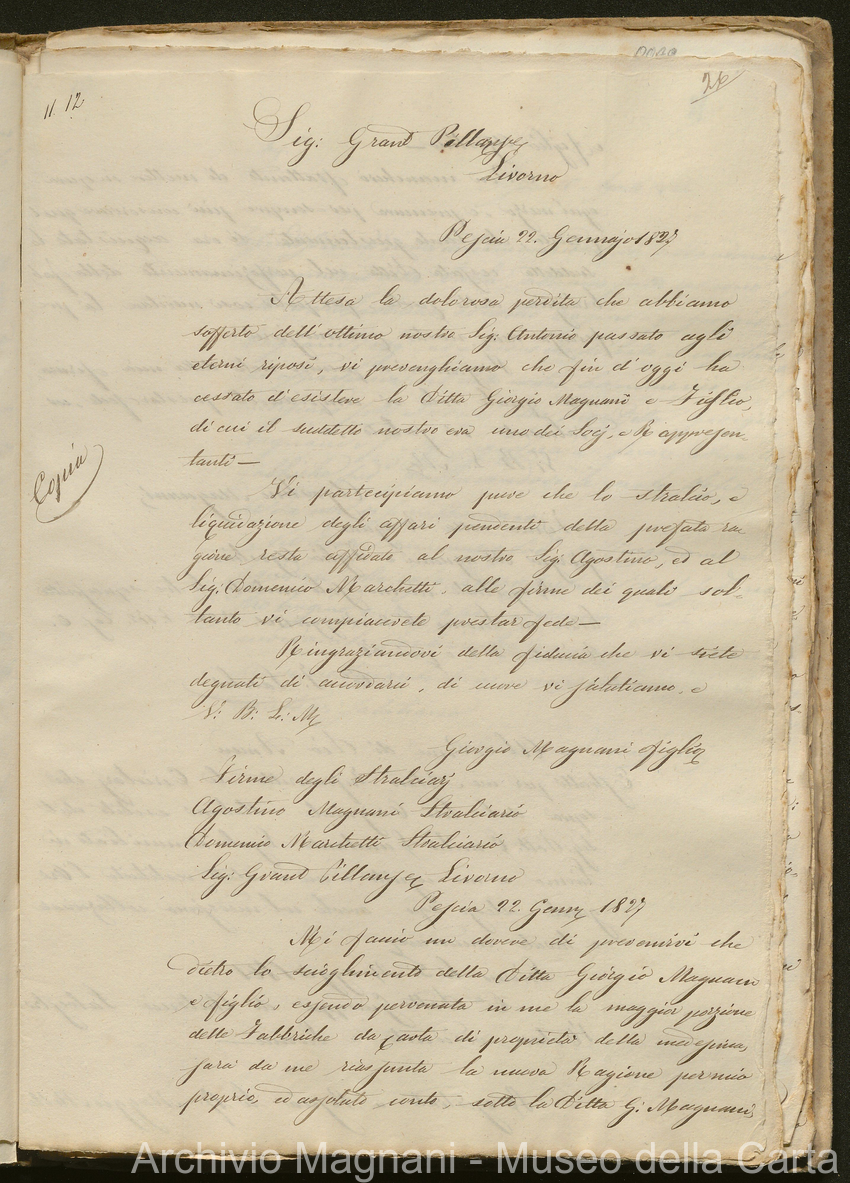 26
11. 12
Sig: Grant Pillans e C.
Livorno
Pescia 22. Gennajo 1827
Attesa la dolorosa perdita che abbiamo
sofferto dell'ottimo nostro Sig: Antonio passato agli
eterni riposi, vi prevenghiamo che fin d'oggi ha
cessato d'esistere la Ditta Giorgio Magnani e Figlio,
di cui il suddetto nostro era uno dei Socj, e Rappresen-
tanti —
Copia
Vi partecipiamo pure che lo stralcio, e
liquidazione degli affari pendenti della prefata ra-
gione resta affidato al nostro Sig: Agostino, ed al
Sig: Domenico Marchetti, alle firme dei quali sol-
tanto vi compiacerete prestar fede —
Ringraziandovi della fiducia che vi siete
degnati di accordarci, di cuore vi salutiamo, e
V: B: L: M
Giorgio Magnani e figlio
Firme degli Stralciarj
Agostino Magnani Stralciario
Domenico Marchetti Stralciario
Sig: Grant Pillans e C. Livorno
Pescia 22. Genn. 1827
Mi faccio un dovere di prevenirvi che
dietro lo scioglimento della Ditta Giorgio Magnani
e figlio, essendo pervenuta in me la maggior porzione
delle Fabbriche da Carta di proprietà della medesima,
sarà da me riassunta la nuova Ragione per mio
proprio, ed assoluto conto, sotto la Ditta G: Magnani,
Archivio Magnani - Museo della Carta